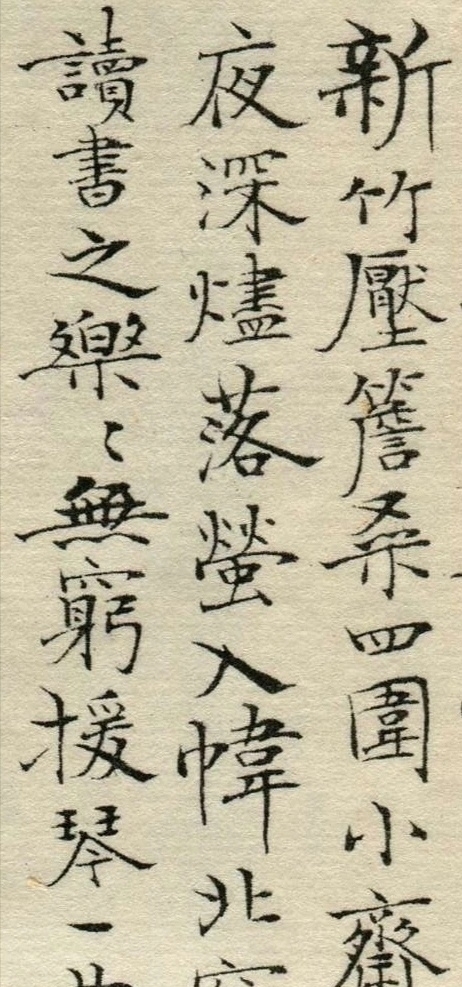 新竹壓簷桑四圍小齋
夜深燼落螢入幃北
讀書之樂〻無窮援琴一